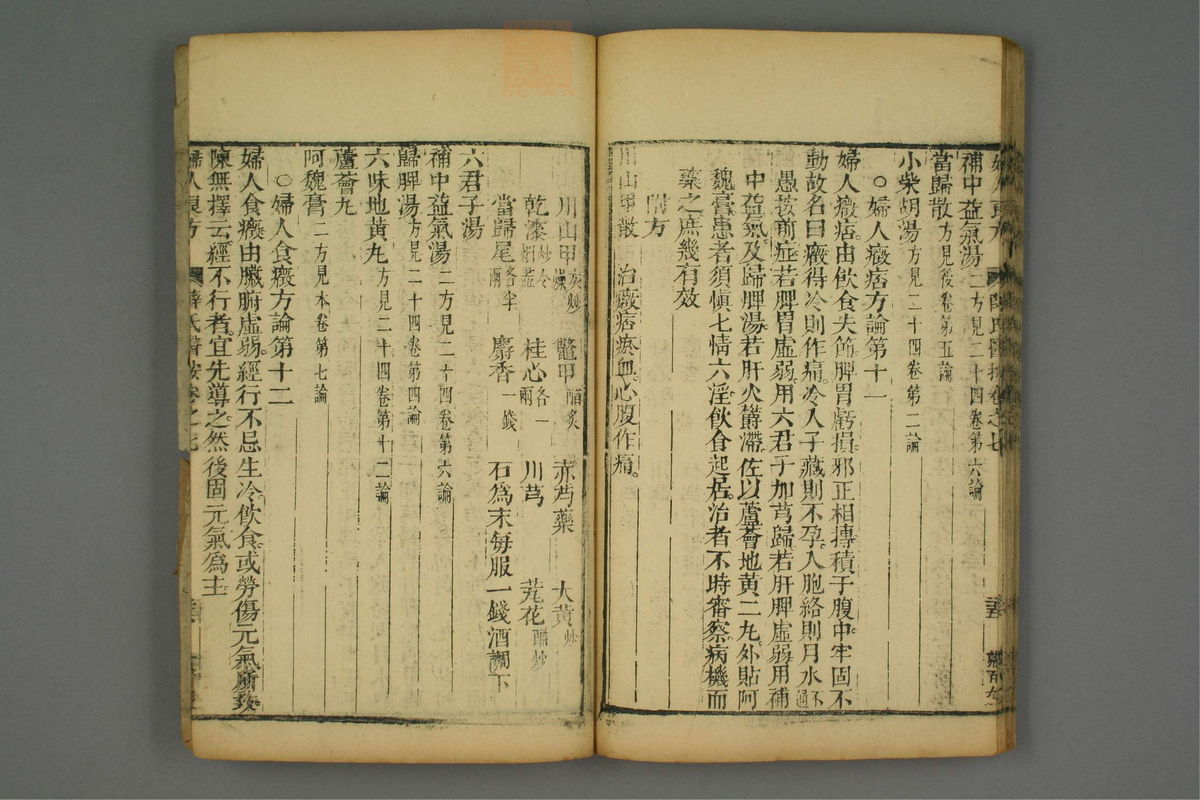 補中益氣湯二方見二十四卷第六論
當歸散方見後卷第五論
小柴胡湯方見二十四卷第二論
○婦人癥痞方論第十一
婦人癥痞由飲食失節脾胃虧損邪正相摶積于腹中牢固不
動故名曰癥得冷則作痛冷入子藏則不孕入胞絡則月水不通
愚按前症若脾胃虛弱用六君子加芎歸若肝脾虛弱用補
中益氣及歸脾湯若肝火鬱滯佐以蘆薈地黃二丸外貼阿
魏膏患者須愼七情六淫飲食起居治者不時審察病機而
藥之庶幾有效
附方
川山甲散 治癥痞瘀血心腹作痛
川山甲灰炒燥 鱉甲醋炙 赤芍藥 大黃炒
乾漆炒令烟盡 桂心各一兩 川芎 芫花醋炒
當歸尾各半兩 麝香一錢 右爲末每服一錢酒調下
六君子湯
補中益氣湯二方見二十四卷第六論
歸脾湯方見二十四卷第四論
六味地黃丸方見二十四卷第十二論
蘆薈丸
阿魏膏二方見本卷第七論
○婦人食癥方論第十二
婦人食癥由臟腑虛弱經行不忌生冷飲食或勞傷元氣所致
陳無擇云經不行者宜先導之然後固元氣爲主
婦人良方 薛氏醫按卷之七